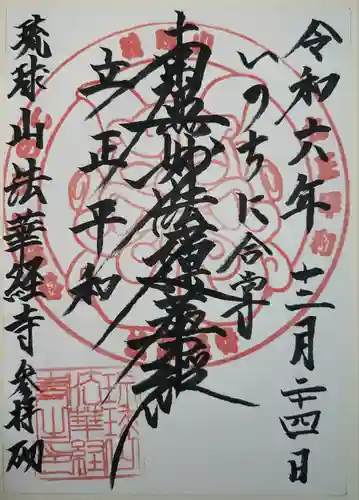 令和六年 十二月二十四日
いのちに合掌
南無妙法蓮華経
立正平和
琉球山法華経寺 参拝砌